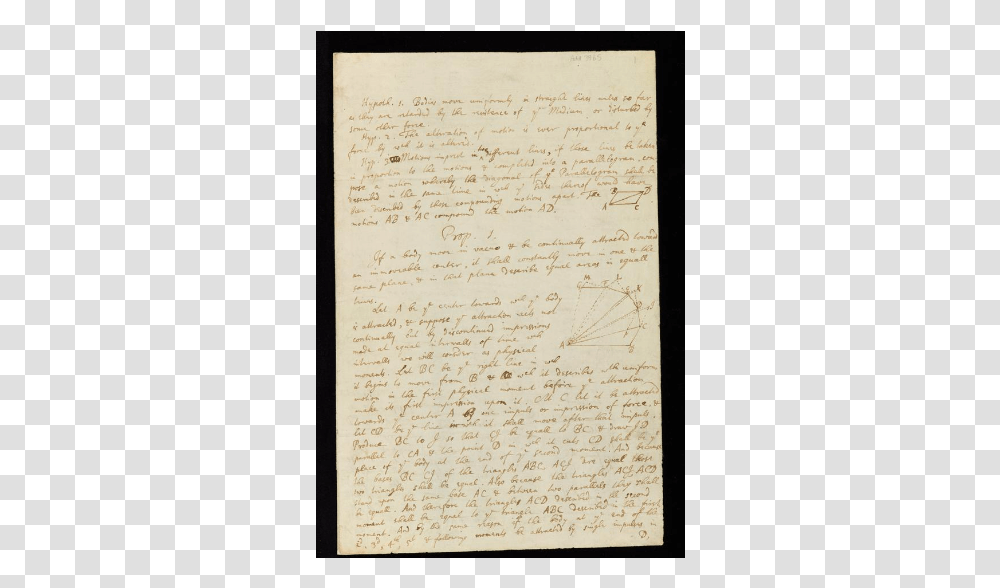 Hypoth. 1. Bodies move uniformly in straight lines unless so far
as they are retarded by the resistence of yᵉ Medium or disturbed by
some other force.
Hyp. 2. The alteration of motion is ever proportional to yᵉ
force by wᶜʰ it is altered.
Hyp. 3. Motions imprest in two different lines, if those lines be taken
in proportion to the motions & completed into a parallelogram, com
pose a motion whereby the diagonal of yᵉ Parallelogram shall be
described in the same time in wᶜʰ yᵉ sides thereof would have
been described by those compounding motions apart. The
motions AB & AC compound the motion AD.
B D
A C
Prop. 1.
If a body move in vacuo & be continually attracted toward
an immoveable center, it shall constantly move in one & the
same plane, & in that plane describe equal areas in equall
times.
Let A be yᵉ center towards wᶜʰ yᵉ body
is attracted, & suppose yᵉ attraction acts not
continually but by discontinued impressions
made at equal intervalls of time wᶜʰ
intervalls we will consider as physical
moments. Let BC be yᵉ right line in wᶜʰ
it begins to move from B & wᶜʰ it describes wᵗʰ uniform
motion in the first physical moment before yᵉ attraction
make its first impression upon it. At C let it be attracted
towards yᵉ center A by one impuls or impression of force, &
let CD be yᵉ line in wᶜʰ it shall move after that impuls.
Produce BC to I so that CI be equall to BC & draw ID
parallel to CA & the point D in wᶜʰ it cuts CD shall be yᵉ
place of yᵉ body at the end of yᵉ second moment. And because
the bases BC CI of the triangles ABC, ACI are equal those
two triangles shall be equal. Also because the triangles ACI, ACD
stand upon the same base AC & between two parallels they shall
be equall. And therefore the triangle ACD described in the second
moment shall be equal to yᵉ triangle ABC described in the first
moment. And by the same reason if the body at yᵉ end of the
2ᵈ, 3ᵈ, 4ᵗʰ, 5ᵗ & following moments be attracted by single impulses in
D,